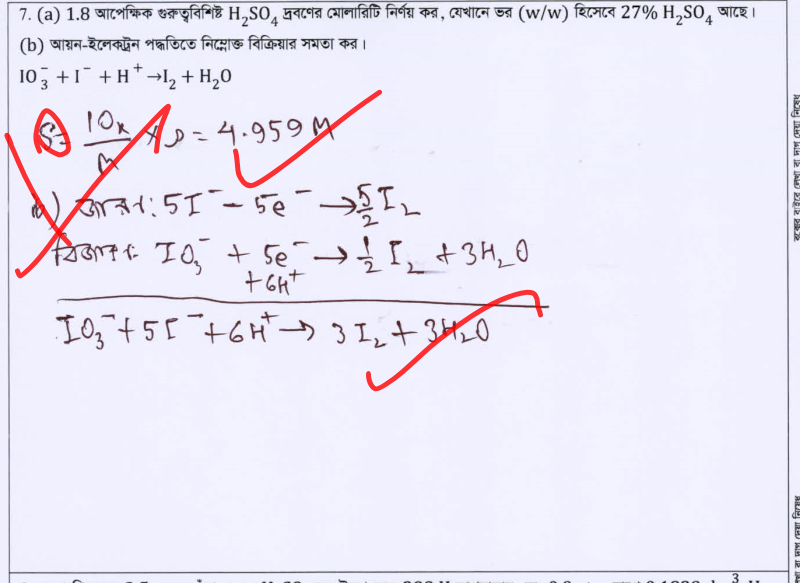 7. (a) 1.8 আপেক্ষিক গুরুত্ববিশিষ্ট H₂SO₄ দ্রবণের মোলারিটি নির্ণয় কর, যেখানে ভর (w/w) হিসেবে 27% H₂SO₄ আছে।
(b) আয়ন-ইলেকট্রন পদ্ধতিতে নিম্নোক্ত বিক্রিয়ার সমতা কর।
IO₃⁻ + I⁻ + H⁺ → I₂ + H₂O
S = 10x/M × ρ = 4.959 M
b) জারণ: 5I⁻ − 5e⁻ → 5/2 I₂
বিজারণ: IO₃⁻ + 5e⁻ → 1/2 I₂ + 3H₂O
+6H⁺
IO₃⁻ + 5I⁻ + 6H⁺ → 3I₂ + 3H₂O